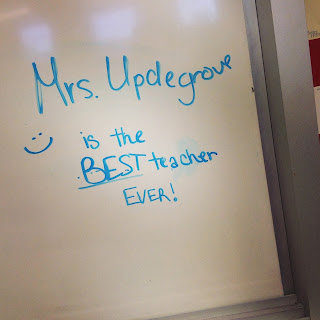 Mrs. Updegrove
is the
BEST teacher
EVER!